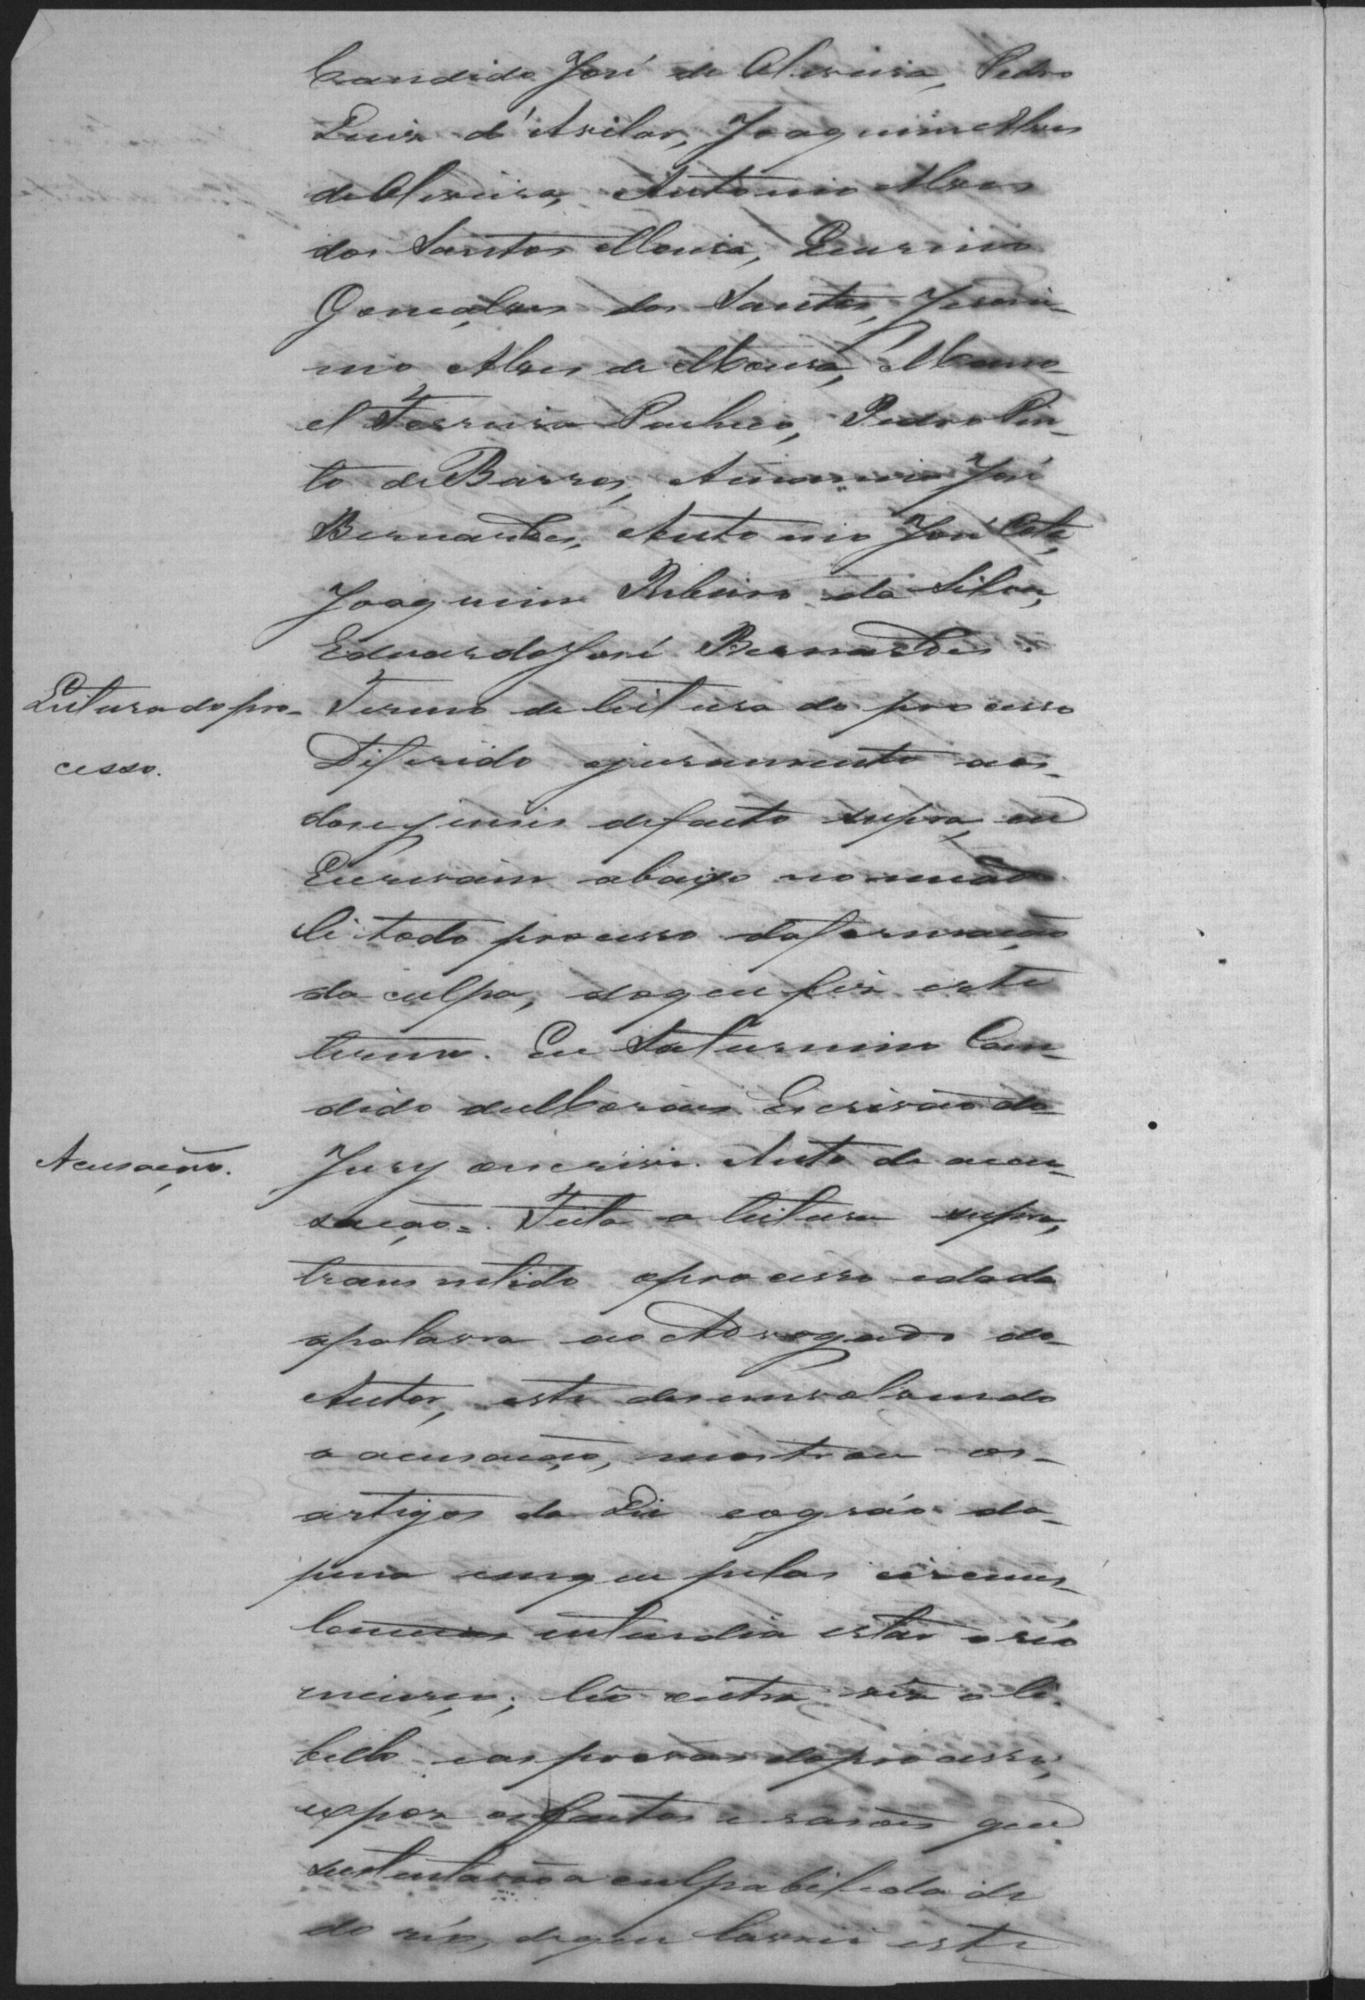 Candido José de Oliveira, Pedro
Luis d'Avilar, Joaquim Alves
de Oliveira, Antonio Alves
dos Santos Moura,
Gonçalves dos Santos, Jeroni-
mo Alves de Moura, Mano-
el Ferreira Pacheco, Pedro Pin-
to de Barros, José
Bernardes, Antonio José Cota,
Joaquim Ribeiro da Silva,
Eduardo José Bernardes.
Leitura do pro-
cesso.
Termo de leitura do processo
Diferido o juramento aos
dose juises de facto supra, eu
Escrivam abaixo nomeado
li todo processo da formação
da culpa, do que fis este
termo. Eu Saturnino Can-
dido de Moraes Escrivão do
Acusação.
Jury o escrivi. Auto de accu-
sação=. Feita a leitura supra,
transmetido o processo e dada
a palavra ao Advogado do
Autor, este desenvolvendo
a acusação, mostrou os
artigos da Lei e o gráo da
pena em que pelas circuns-
tancias entendia estar o réo
incurso; leo outra vez o li-
bello e as provas do processo,
expoz os factos e rasoes que
sustentavão a culpabilidade
do réo, do que lavrei este